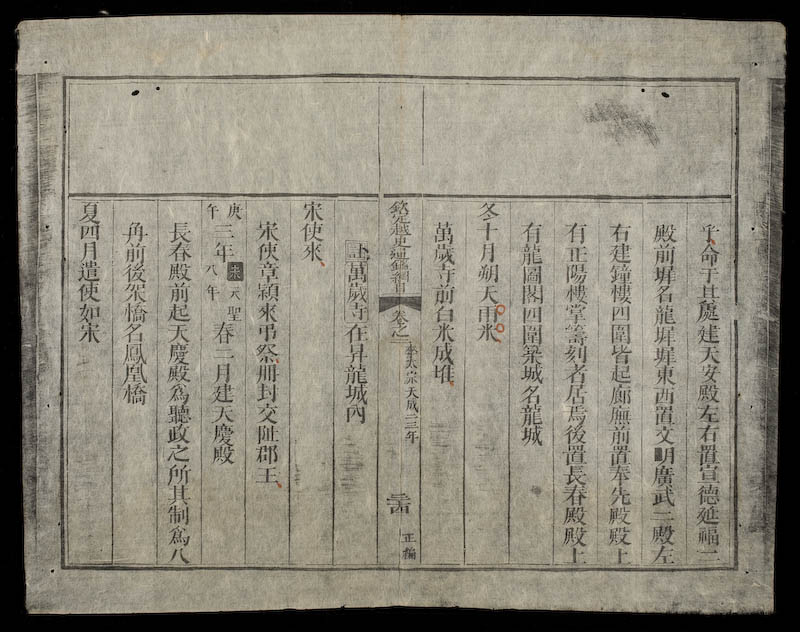 乎命于其處建天安殿左右置宣德延福二
殿前墀名龍墀墀東西置文明廣武二殿左
右建鐘樓四圍皆起廊廡前置奉先殿殿上
有正陽樓掌籌刻者居焉後置長春殿殿上
有龍圖閣四圍築城名龍城
冬十月朔天雨米
萬歲寺前白米成堆
欽定越史通鑑綱目 卷之 李太宗天成二三年 正編
註萬歲寺在昇龍城內
宋使來
宋使章穎來弔祭册封交阯郡王
庚午三年宋天聖八年春二月建天慶殿
長春殿前起天慶殿爲聽政之所其制爲八
角前後架橋名鳳凰橋
夏四月遣使如宋